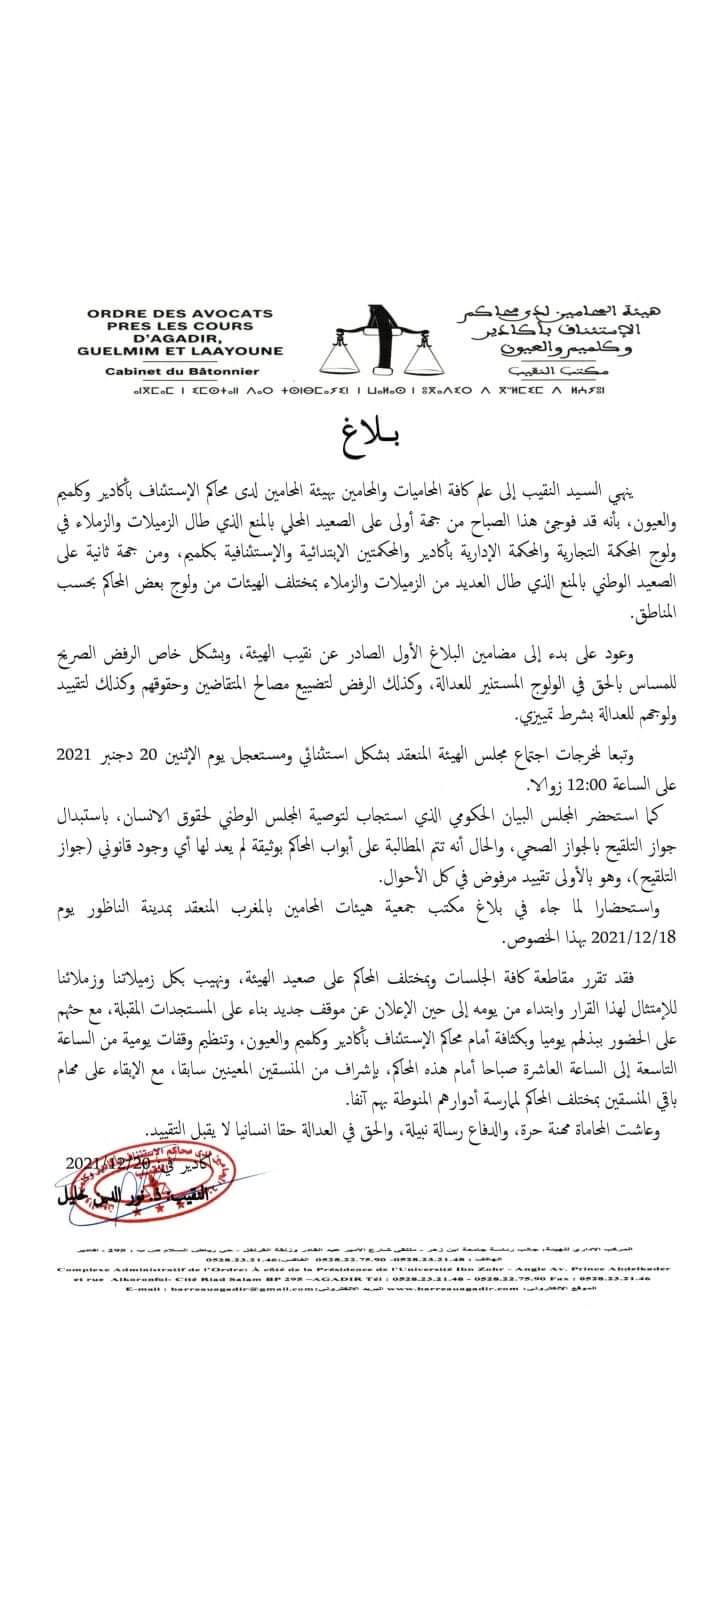 ORDRE DES AVOCATS
PRES LES COURS
D'AGADIR,
GUELMIM ET LAAYOUNE
Cabinet du Bâtonnier
هيئة المحامين لدى محاكم
الإستئناف بأكادير
وكلميم والعيون
مكتب النقيب
بـلاغ
ينهي السيد النقيب إلى علم كافة المحاميات والمحامين بهيئة المحامين لدى محاكم الإستئناف بأكادير وكلميم
والعيون، بأنه قد فوجئ هذا الصباح من جهة أولى على الصعيد المحلي بالمنع الذي طال الزميلات والزملاء في
ولوج المحكمة التجارية والمحكمة الإدارية بأكادير والمحكمتين الإبتدائية والإستئنافية بكلميم، ومن جهة ثانية على
الصعيد الوطني بالمنع الذي طال العديد من الزميلات والزملاء بمختلف الهيئات من ولوج بعض المحاكم بحسب
المناطق.
وعود على بدء إلى مضامين البلاغ الأول الصادر عن نقيب الهيئة، وبشكل خاص الرفض الصريح
للمساس بالحق في الولوج المستنير للعدالة، وكذلك الرفض لتضييع مصالح المتقاضين وحقوقهم وكذلك لتقييد
ولوجهم للعدالة بشرط تمييزي.
وتبعا لمخرجات اجتماع مجلس الهيئة المنعقد بشكل استثنائي ومستعجل يوم الإثنين 20 دجنبر 2021
على الساعة 12:00 زوالا.
كما استحضر المجلس البيان الحكومي الذي استجاب لتوصية المجلس الوطني لحقوق الانسان، باستبدال
جواز التلقيح بالجواز الصحي، والحال أنه تتم المطالبة على أبواب المحاكم بوثيقة لم يعد لها أي وجود قانوني (جواز
التلقيح)، وهو بالأولى تقييد مرفوض في كل الأحوال.
واستحضارا لما جاء في بلاغ مكتب جمعية هيئات المحامين بالمغرب المنعقد بمدينة الناظور يوم
2021/12/18 بهذا الخصوص.
فقد تقرر مقاطعة كافة الجلسات وبمختلف المحاكم على صعيد الهيئة، ونهيب بكل زميلاتنا وزملائنا
للإمتثال لهذا القرار وابتداء من يومه إلى حين الإعلان عن موقف جديد بناء على المستجدات المقبلة، مع حثهم
على الحضور ببذلهم يوميا وبكثافة أمام محاكم الإستئناف بأكادير وكلميم والعيون، وتنظيم وقفات يومية من الساعة
التاسعة إلى الساعة العاشرة صباحا أمام هذه المحاكم، بإشراف من المنسقين المعينين سابقا، مع الإبقاء على مهام
باقي المنسقين بمختلف المحاكم لممارسة أدوارهم المنوطة بهم آنفا.
وعاشت المحاماة مهنة حرة، والدفاع رسالة نبيلة، والحق في العدالة حقا انسانيا لا يقبل التقييد.
أكادير في 2021/12/20
النقيب: ذ. نور الدين خليل
المركب الاداري للهيئة: جانب رئاسة جامعة ابن زهر - ملتقى شارع الأمير عبد القادر وزنقة القرنفل - حي رياض السلام ص ب : 295 - اكادير
الهاتف : 0528.23.21.48 -0528.22.75.90 الفاكس:0528.23.21.46
Complexe Administratif de l'Ordre: À côté de la Présidence de l'Université Ibn Zohr - Angle Av. Prince Abdelkader
et rue Alkoronful- Cité Riad Salam BP 295 -AGADIR Tél : 0528.23.21.48 - 0528.22.75.90 Fax : 0528.23.21.46
E-mail : barreauagadir@gmail.com :البريد الالكتروني www.barreauagadir.com :الموقع الالكتروني